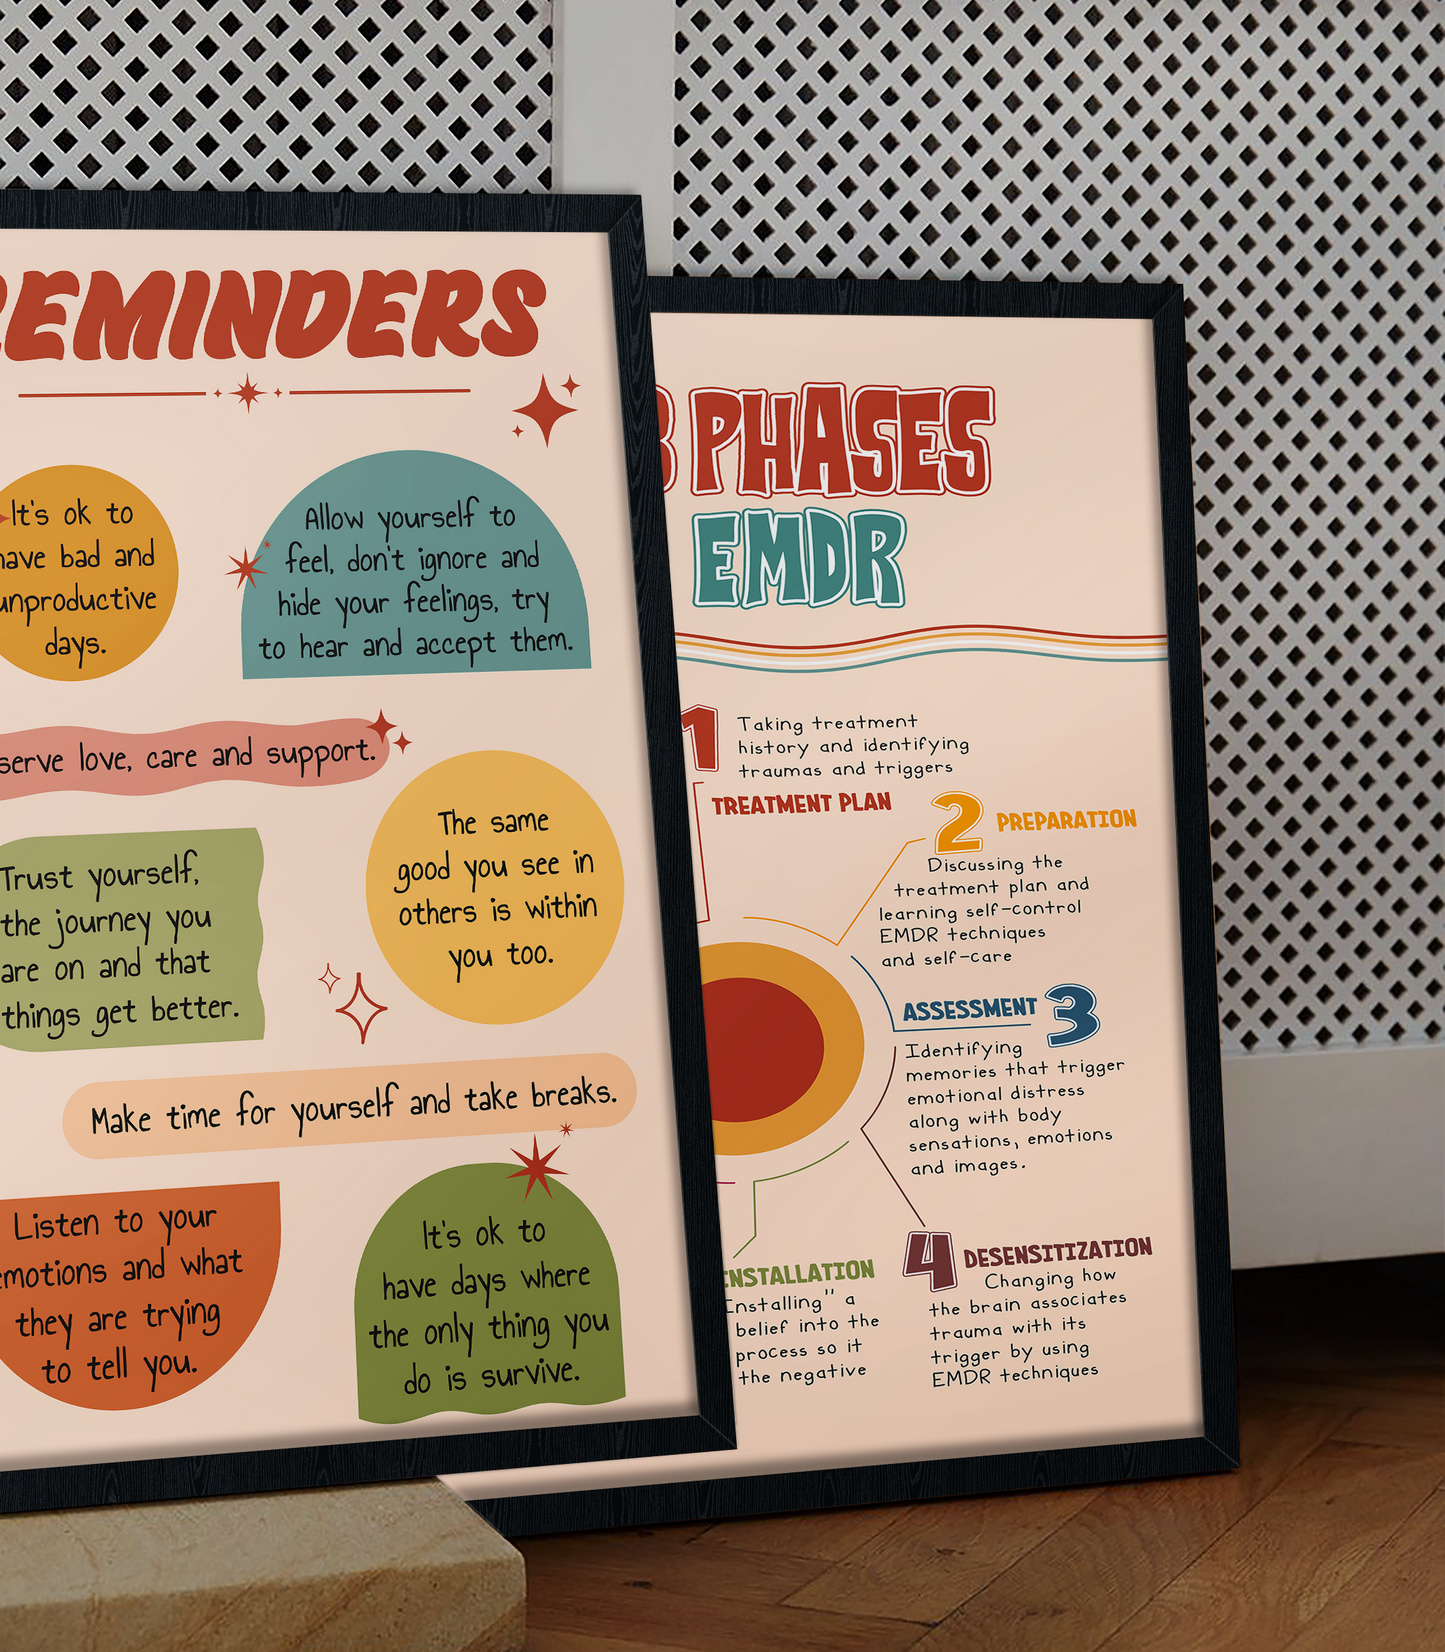 REMINDERS
It's ok to
have bad and
unproductive
days.
Allow yourself to
feel, don't ignore and
hide your feelings, try
to hear and accept them.
serve love, care and support.
Trust yourself,
the journey you
are on and that
things get better.
The same
good you see in
others is within
you too.
Make time for yourself and take breaks.
Listen to your
emotions and what
they are trying
to tell you.
It's ok to
have days where
the only thing you
do is survive.
8 PHASES
EMDR
1
Taking treatment
history and identifying
traumas and triggers
TREATMENT PLAN
2 PREPARATION
Discussing the
treatment plan and
learning self-control
EMDR techniques
and self-care
ASSESSMENT 3
Identifying
memories that trigger
emotional distress
along with body
sensations, emotions
and images.
4 DESENSITIZATION
Changing how
the brain associates
trauma with its
trigger by using
EMDR techniques
INSTALLATION
Installing" a
belief into the
process so it
the negative